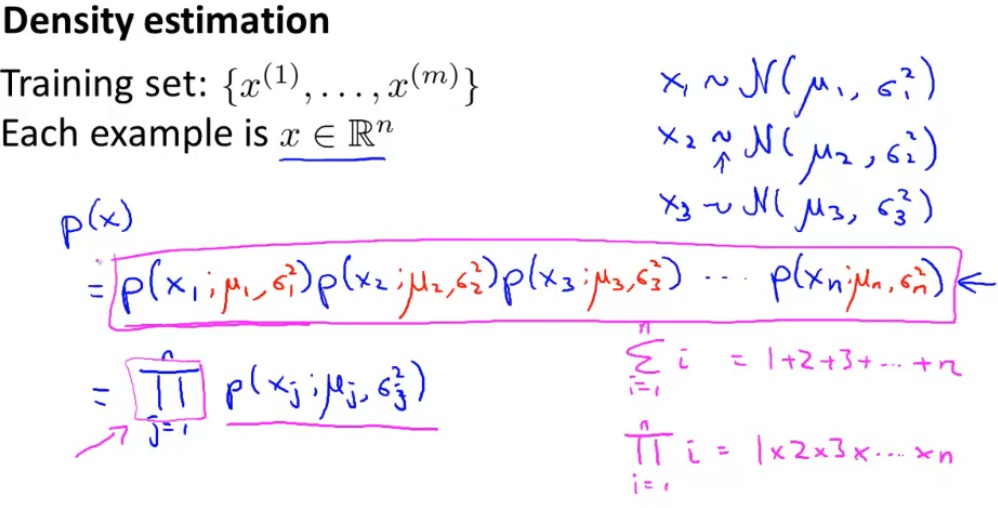 Density estimation
Training set: {x⁽¹⁾, . . . , x⁽ᵐ⁾}
Each example is x ∈ ℝⁿ
x₁ ~ N(μ₁, σ₁²)
x₂ ~ N(μ₂, σ₂²)
↑
x₃ ~ N(μ₃, σ₃²)
p(x)
= p(x₁; μ₁, σ₁²) p(x₂; μ₂, σ₂²) p(x₃; μ₃, σ₃²) ··· p(xₙ; μₙ, σₙ²) ←
= ∏ⱼ₌₁ⁿ p(xⱼ; μⱼ, σⱼ²)
∑ᵢ₌₁ⁿ i = 1+2+3+···+n
∏ᵢ₌₁ⁿ i = 1×2×3×···×n